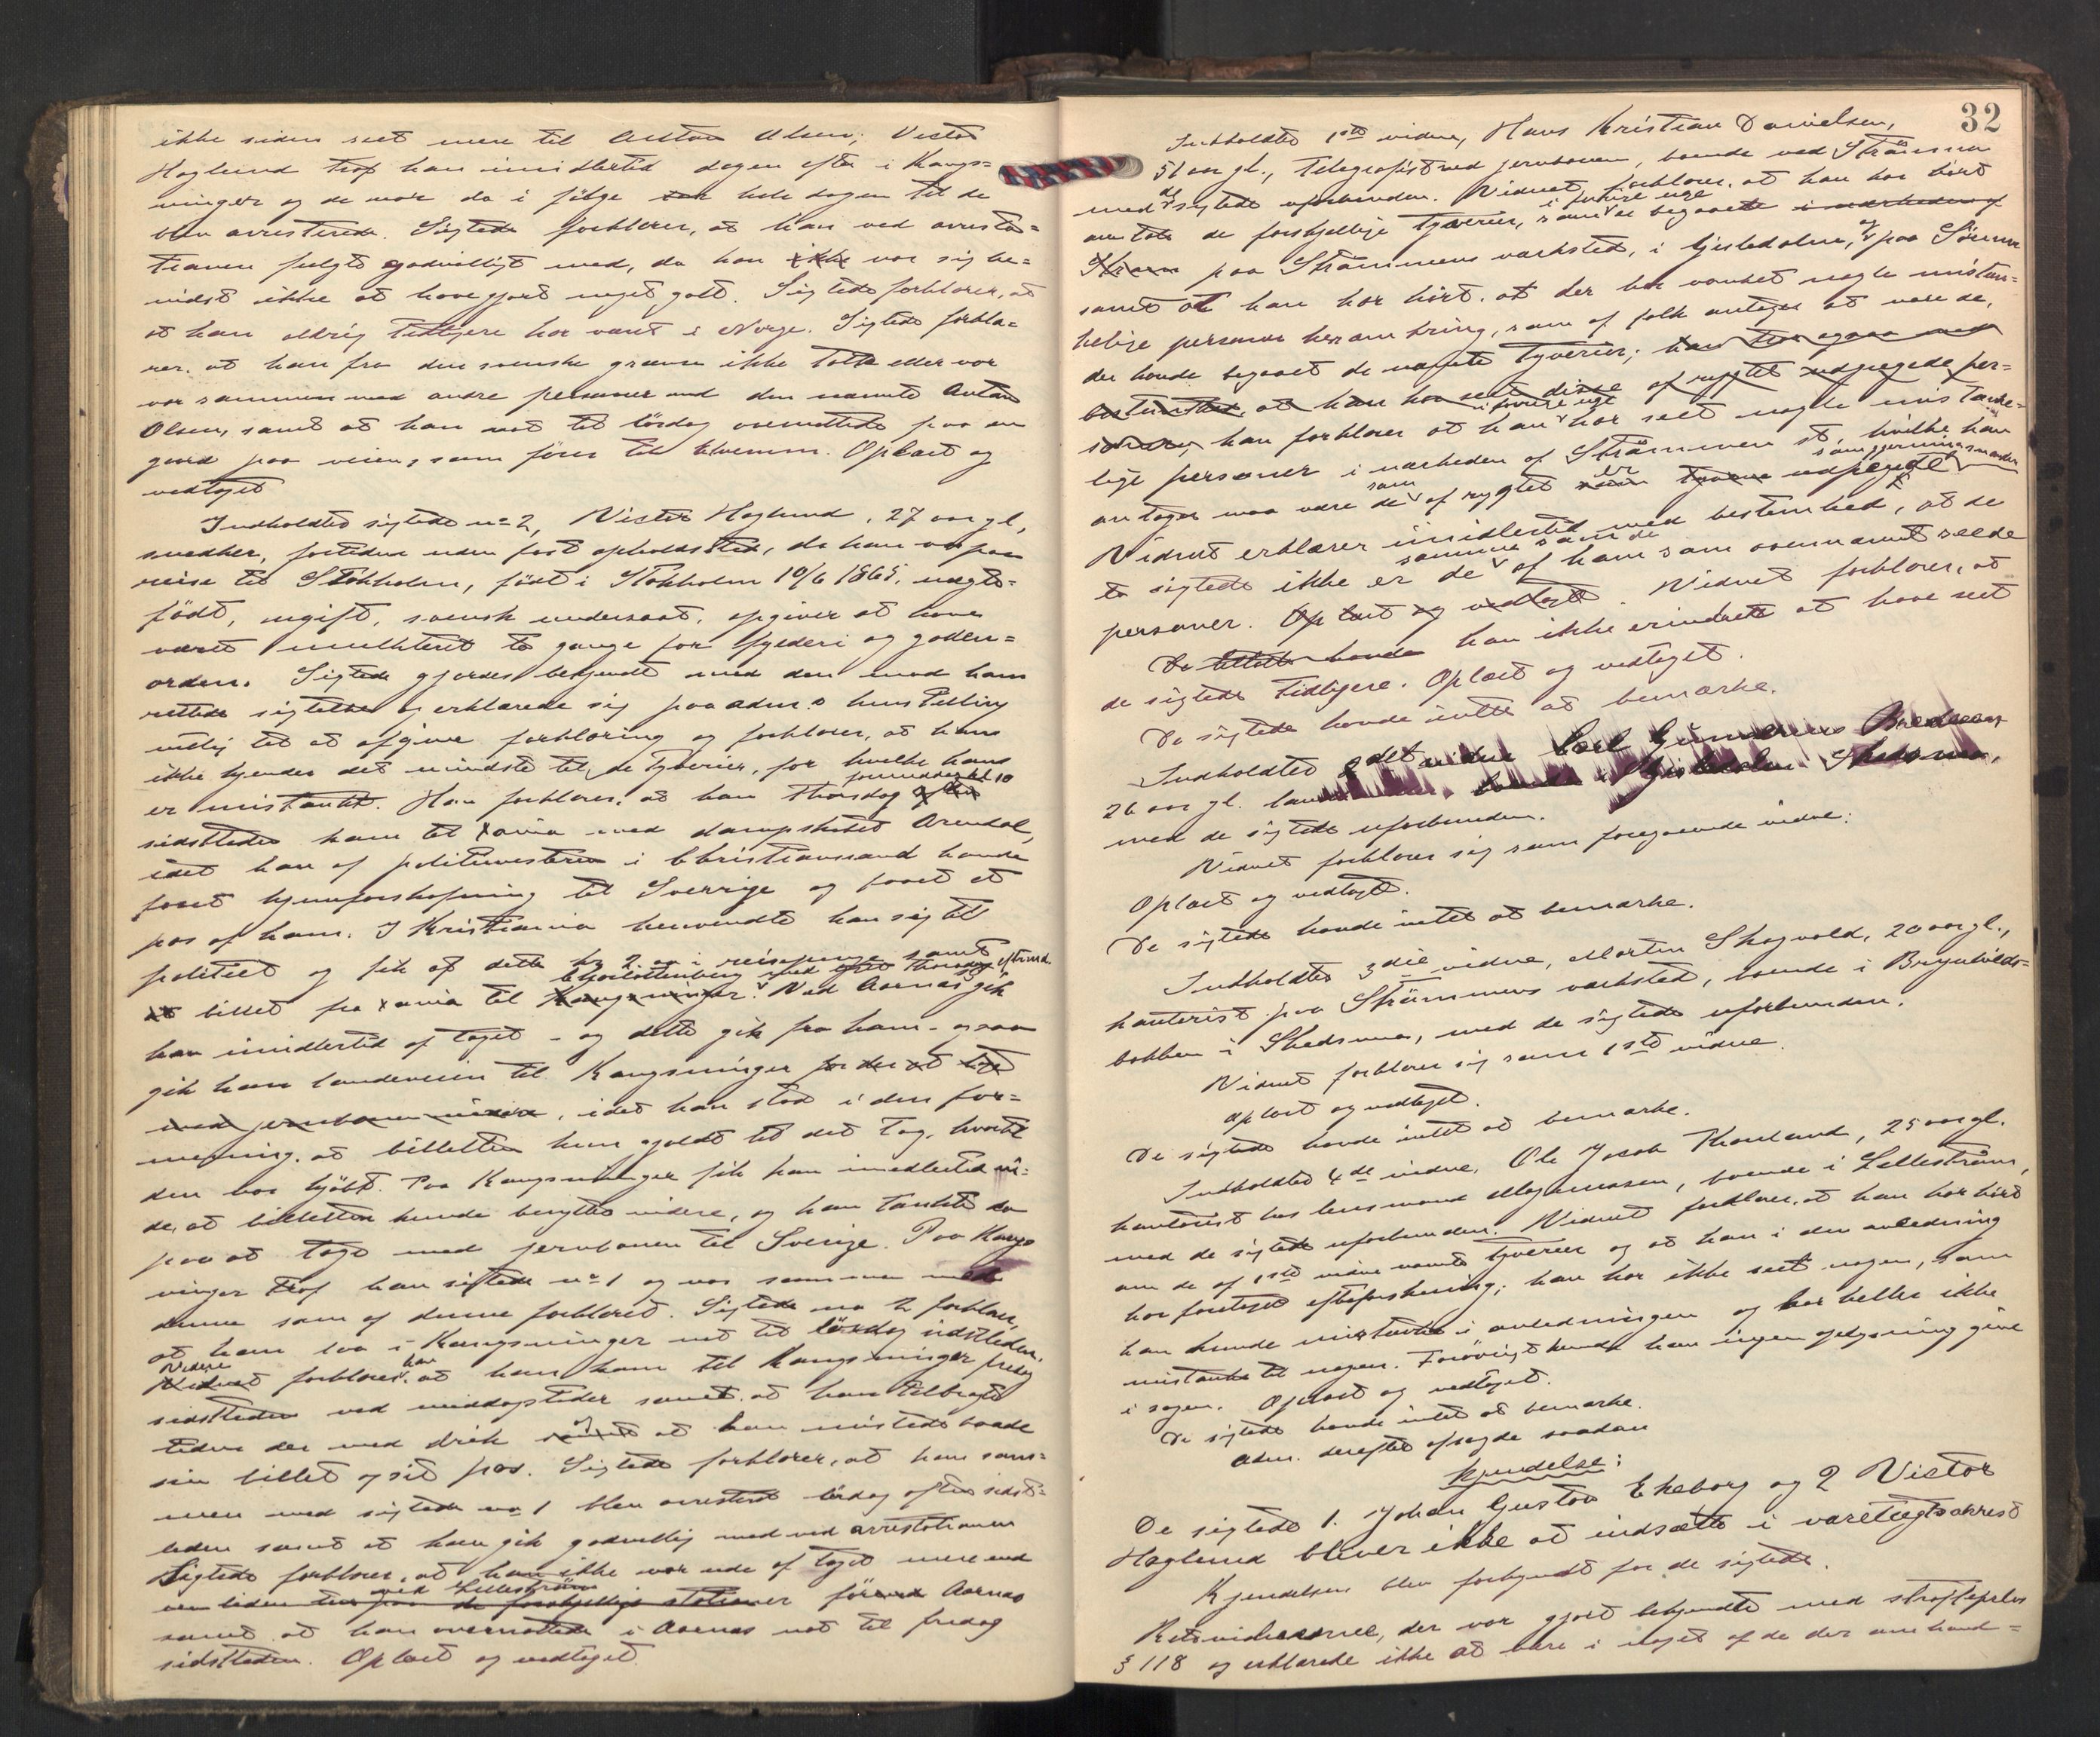 ikke siden seet mere til Anton Olsen; Victor
Høglund traf han imidlertid dagen efter i Kongs=
vinger og de var da i følge hele dagen til de
blev arresterede. Sigtede forklarer, at han ved arresta=
tionen fulgte godvilligt med, da han ikke var sig be=
vidst ikke at have gjort noget galt. Sigtede forklarer, at
at han aldrig tidligere har været i Norge. Sigtede forkla=
rer, at han fra den svenske grænse ikke talte eller var
var sammen med andre personer end den nævnte Anton
Olsen, samt at han nat til lördag overnattede paa en
gaard paa veien, som fører til Elverum. Oplæst og
vedtaget
Indholdtes sigtede no 2, Victor Høglund, 27 aar gl,
snedker, fortiden uden fast opholdssted, da han var paa
reise til Stokholm, født i Stokholm 10/6 1865, uægte=
født, ugift, svensk undersaat, opgiver at have
været mulkteret to gange for fylderi og gadeu=
orden. Sigtede gjordes bekjendt med den mod ham
rettede sigtelse og erklærede sig paa adm.s henstilling
villig til at afgive forklaring og forklarer, at han
ikke kjender det mindste til de tyverier, for hvilke han
er mistænkt. Han forklarer, at han thorsdag formiddag kl 10
sidstleden kom til Xania med dampskibet Arendal,
idet han af politimesteren i Christianssand havde
faaet hjemforskafning til Sverrige og faaet et
pas af ham. I Kristiania henvendte han sig til
politiet og fik af dette kr 2.00 i reisepenge samt
Charlottenberg med toget thorsdag eftermd.
et billet fra Xania til Kongsvinger. Ved Aarnæs gik
han imidlertid af toget – og dette gik fra ham – og saa
gik han landeveien til Kongsvinger for der at tage
med jernbanen videre, idet han stod i den for=
mening, at billetten kun gjaldt til det tog, hvortil
den var kjøbt. Paa Kongsvinger fik han imidlertid vi=
de, at billetten kunde benyttes videre, og han tænkte da
paa at tage med jernbanen til Sverige. Paa Kongs
vinger traf han sigtede no 1 og var sammen med
denne som af denne forklaret. Sigtede no 2 forklarer,
at han laa i Kongsvinger nat til lørdag sidstleden.
Videre
Vidnet forklarer han at han kom til Kongsvinger fredag
sidstleden ved middagstider samt at han tilbragte
tiden der med drik samt og at han mistede baade
sin billet og sit pas. Sigtede forklarer, at han sam=
men med sigtede no 1 blev arresteret lørdag aften sidst=
leden samt at han gik godvillig med ved arrestationen
Sigtede forklarer, at han ikke var ude af toget mere end
ved Lillestrøm
en liden tur paa de forskjellige stationer førend Aarnæs
samt at han overnattede i Aarnæs nat til fredag
sidstleden. Oplæst og vedtaget.
32
Indholdtes 1ste vidne, Hans Kristian Danielsen,
51 aar gl., telegrafist ved jernbanen, boende ved Strømmen
med de sigtede uforbunden. Vidnet forklarer, at han har hørt
i forrige uge
omtale de forskjellige tyverier, som er begaaede i nærheden af
Strøm paa Strømmens værksted, i Gjesledalen, og paa Sörum
samt at han har hørt, at der har vanket nogle mistæn=
kelige personer heromkring, som af folk antages at være de,
der havde begaaet de nævnte tyverier; han tror ogsaa med
bestemthed, at han har seet disse af rygtet udpegede per=
i forrige uge
soner, han forklarer at han har seet nogle mistænke=
lige personer i nærheden af Strømmen st, hvilke han
som er som gjerningsmænder
antager maa være de af rygtet som tyvene udpegede
Vidnet erklærer imidlertid med bestemthed, at de
samme som de
to sigtede ikke er de af ham som ovennævnt seede
personer. Oplæst og vedtaget. Vidnet forklarer, at
De tiltalte havde han ikke erindrede at have seet
de sigtede tidligere. Oplæst og vedtaget.
De sigtede havde intet at bemærke.
Indholdtes 2det vidne Carl Gunerius Bredesen
26 aar gl. boende i Gjesledalen i Skedsmo,
med de sigtede uforbunden.
Vidnet forklarer sig som foregaaende vidne.
Oplæst og vedtaget.
De sigtede havde intet at bemærke.
Indholdtes 3die vidne, Morten Skogvold, 20 aar gl.,
kontorist paa Strømmens værksted, boende i Brynhilds=
bakken i Skedsmo, med de sigtede uforbunden.
Vidnet forklarer sig som 1ste vidne.
Oplæst og vedtaget.
De sigtede havde intet at bemærke.
Indholdtes 4de vidne, Ole Jacob Thorland, 25 aar gl.
kontorist hos lensmand Mogensen, boende i Lillestrøm,
med de sigtede uforbunden. Vidnet forklarer, at han har hørt
om de af 1ste vidne nævnte tyverier og at han i den anledning
har foretaget efterforskning; han har ikke seet nogen, som
han kunde mistænke i anledningen og har heller ikke
mistanke til nogen. Forøvrigt kunde han ingen oplysning give
i sagen. Oplæst og vedtaget.
De sigtede havde intet at bemærke.
Adm. derefter afsagde saadan
Kjendelse:
De sigtede 1. Johan Gustav Ekeborg og 2 Victor
Høglund bliver ikke at indsætte i varetægtsarrest
Kjendelsen blev forkyndt for de sigtede.
Retsvidnerne, der var gjort bekjendte med straffepr.lov
§ 118 og erklærede ikke at være i noget af de der omhand=